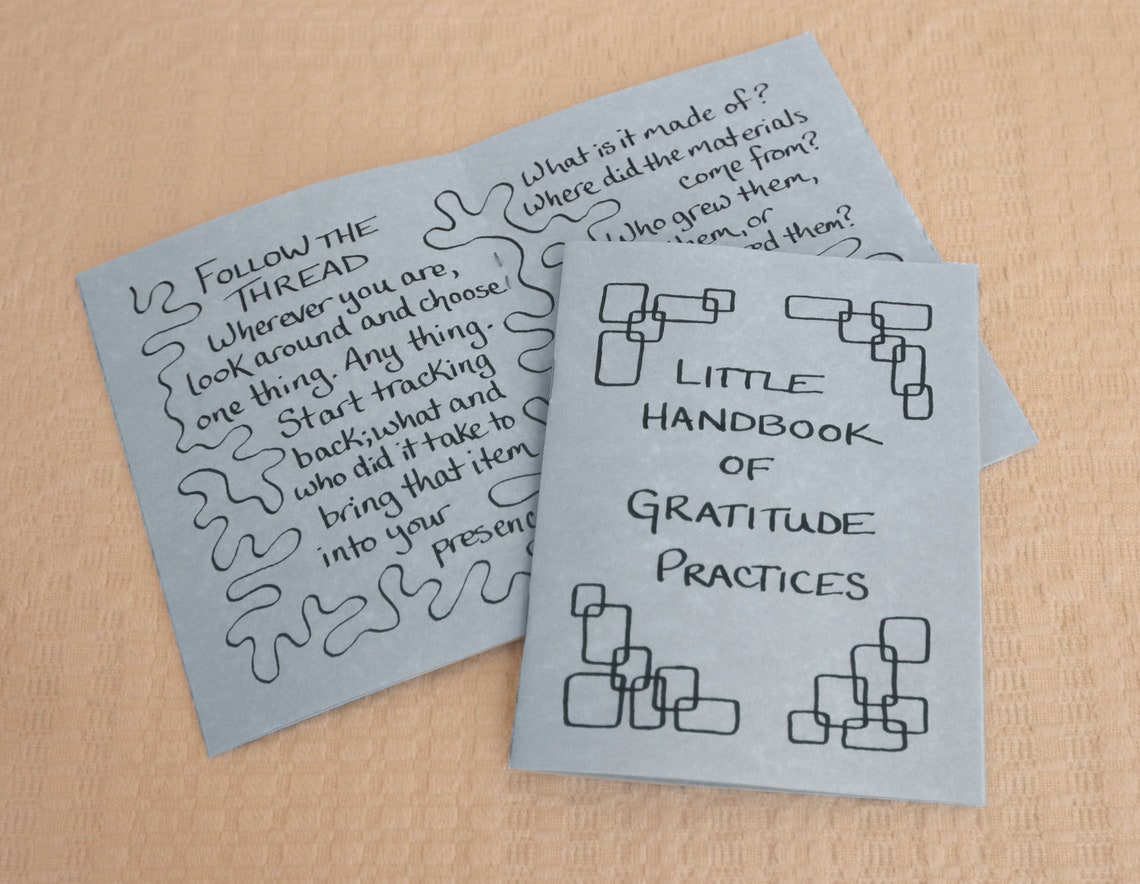 FOLLOW THE
THREAD
Wherever you are,
look around and choose
one thing. Any thing.
Start tracking
back; what and
who did it take to
bring that item
into your
What is it made of?
Where did the materials
come from?
Who grew them,
them, or
them?
LITTLE
HANDBOOK
OF
GRATITUDE
PRACTICES